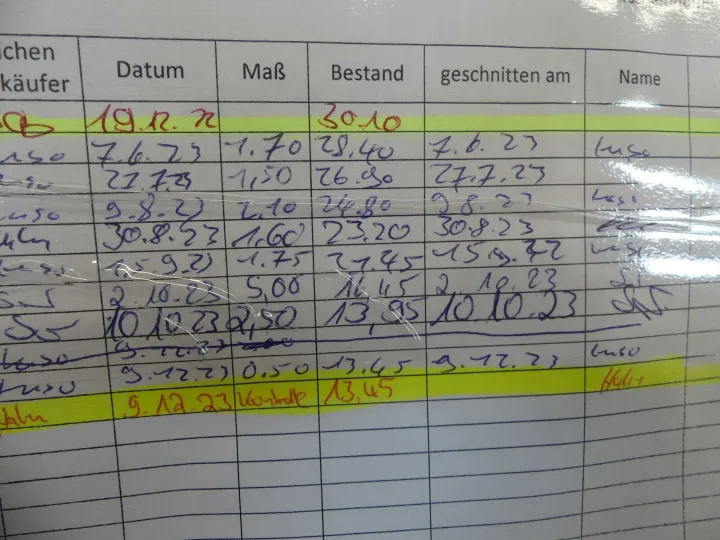 ichen
käufer Datum Maß Bestand geschnitten am Name
19.12.22 30.10
uso 7.6.23 1.70 28,40 7.6.23 Luso
27.7.23 1,50 26.90 27.7.23
uso 9.8.23 2,10 24.80 9.8.23
30.8.23 1,60 23,20 30.8.23
15.9.23 1.75 21,45
2.10.23 5,00 16,45 2.10.23
10.10.23 2,50 13,95 10.10.23
Luso 9.12.23
Luso 9.12.23 0.50 13.45 9.12.23 Luso
9.12.23 Kontrolle 13,45